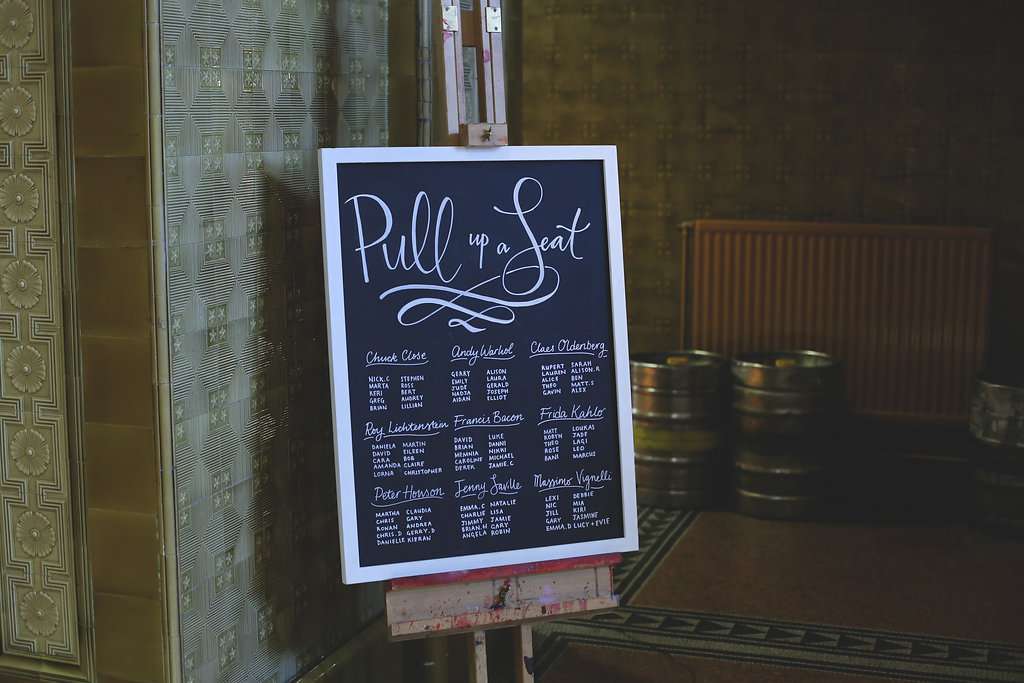 Pull up a Seat
Chuck Close
NICK.C STEPHEN
MARTA ROSS
KERI BERT
GREG AUDREY
BRIAN LILLIAN
Andy Warhol
GERRY ALISON
EMILY LAURA
JUDE GERALD
NADJA JOSEPH
AIDAN ELLIOT
Claes Oldenberg
RUPERT SARAH
LAUREN ALISON.R
ALICE BEN
THEO MATT.S
GAVIN ALEX
Roy Lichtenstein
DANIELA MARTIN
DAVID EILEEN
CARA BOB
AMANDA CLAIRE
LORNA CHRISTOPHER
Francis Bacon
DAVID LUKE
BRIAN DANNI
MEMNIA NIKKI
CAROLINE MICHAEL
DEREK JAMIE.C
Frida Kahlo
MATT LOUKAS
ROBYN JADE
THEO LAGI
ROSE LEO
BANI MARCUS
Peter Howson
MARTHA CLAUDIA
CHRIS GARY
RONAN ANDREA
CHRIS.D GERRY.D
DANIELLE KIERAN
Jenny Saville
EMMA.C NATALIE
CHARLIE LISA
JIMMY JAMIE
BRIAN.H GARY
ANGELA ROBIN
Massimo Vignelli
LEXI DEBBIE
NIC MIA
JILL KIRI
GARY JASMINE
EMMA.D LUCY + EVIE